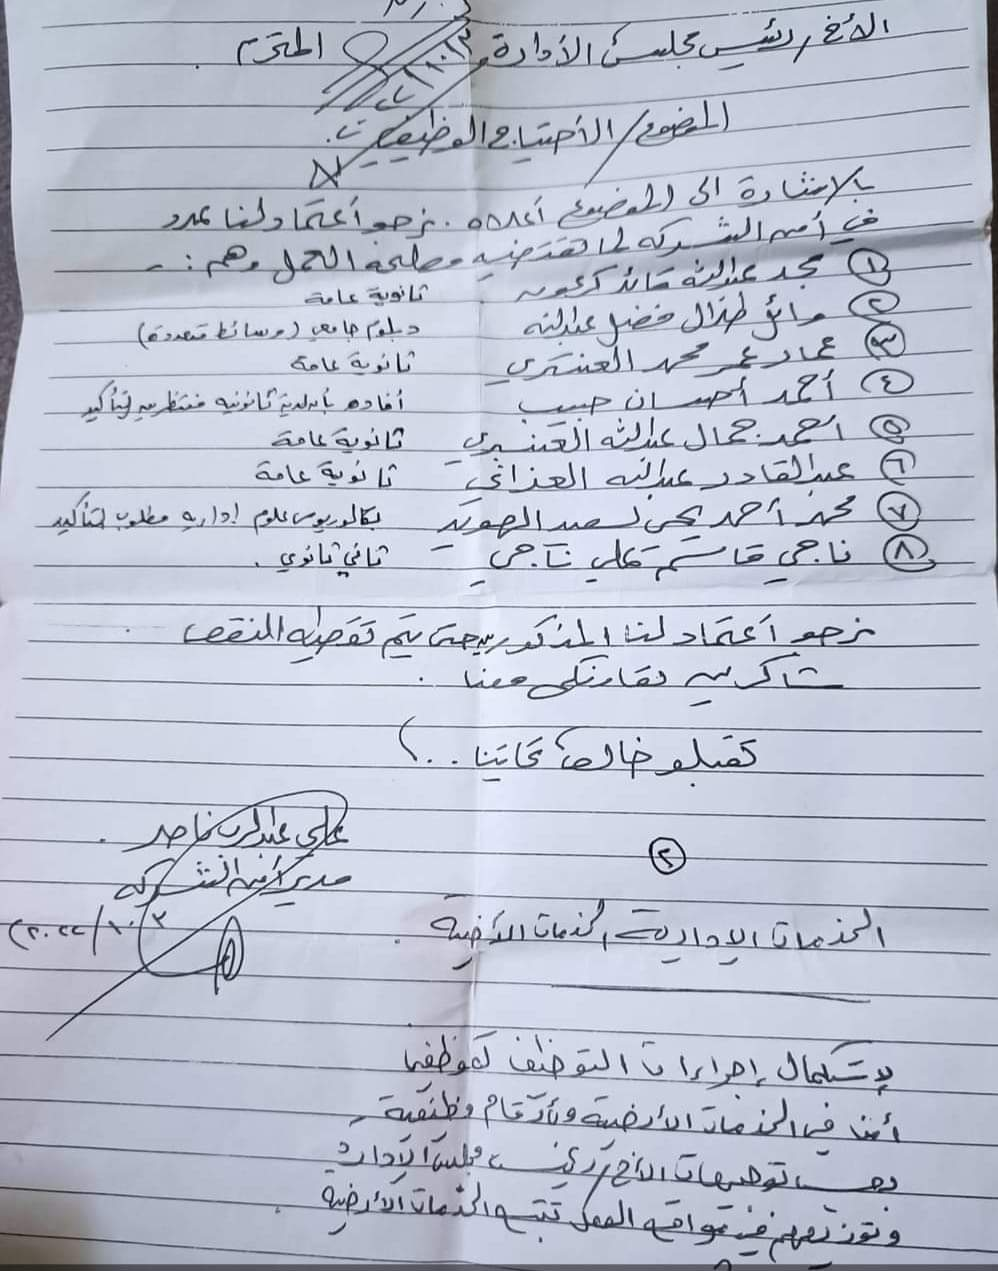 الأخ / رئيس مجلس الأدارة المحترم .
الموضوع / الأحتياج الوظيفي
بالإشارة الى الموضوع أعلاه . نرجو أعتماد لنا عدد
في أمن الشركه لما تقتضيه مصلحة العمل وهم : -
١ عبدالله قائد ثانوية عامة
٢ طلال فضل عبدالله دبلوم جامعي (وسائط متعددة)
٣ عماد عمر محمد العنتري ثانوية عامة
٤ أحمد أحسان حبيب أفاده ثانويه منتظرين تأكيد
٥ أحمد جمال عبدالله العنتري ثانوية عامة
٦ عبدالقادر عبدالله ثانوية عامة
٧ محمد أحمد يحي بكالوريوس علوم إداريه مطلوب تأكيد
٨ ناجي قاسم علي ناجي ثاني ثانوي .
نرجو أعتماد لنا المذكورين حتى يتم تغطيه النقص
شاكرين تعاونكم معنا .
تقبلو خالص تحاتينا . . )
علي عبدالرب
مدير أمن الشركه
٢ / ١٠ / ٢٠٢٢)
٢
الخدمات الإدارية الخدمات الأرضية .
لإستكمال إجراءات التوظيف كموظفي
أمن في الخدمات الأرضية وبأرقام وظيفية
توجيهات الأخ / رئيس مجلس الإدارة
وتوزيعهم في مواقع العمل تتبع الخدمات الأرضية .